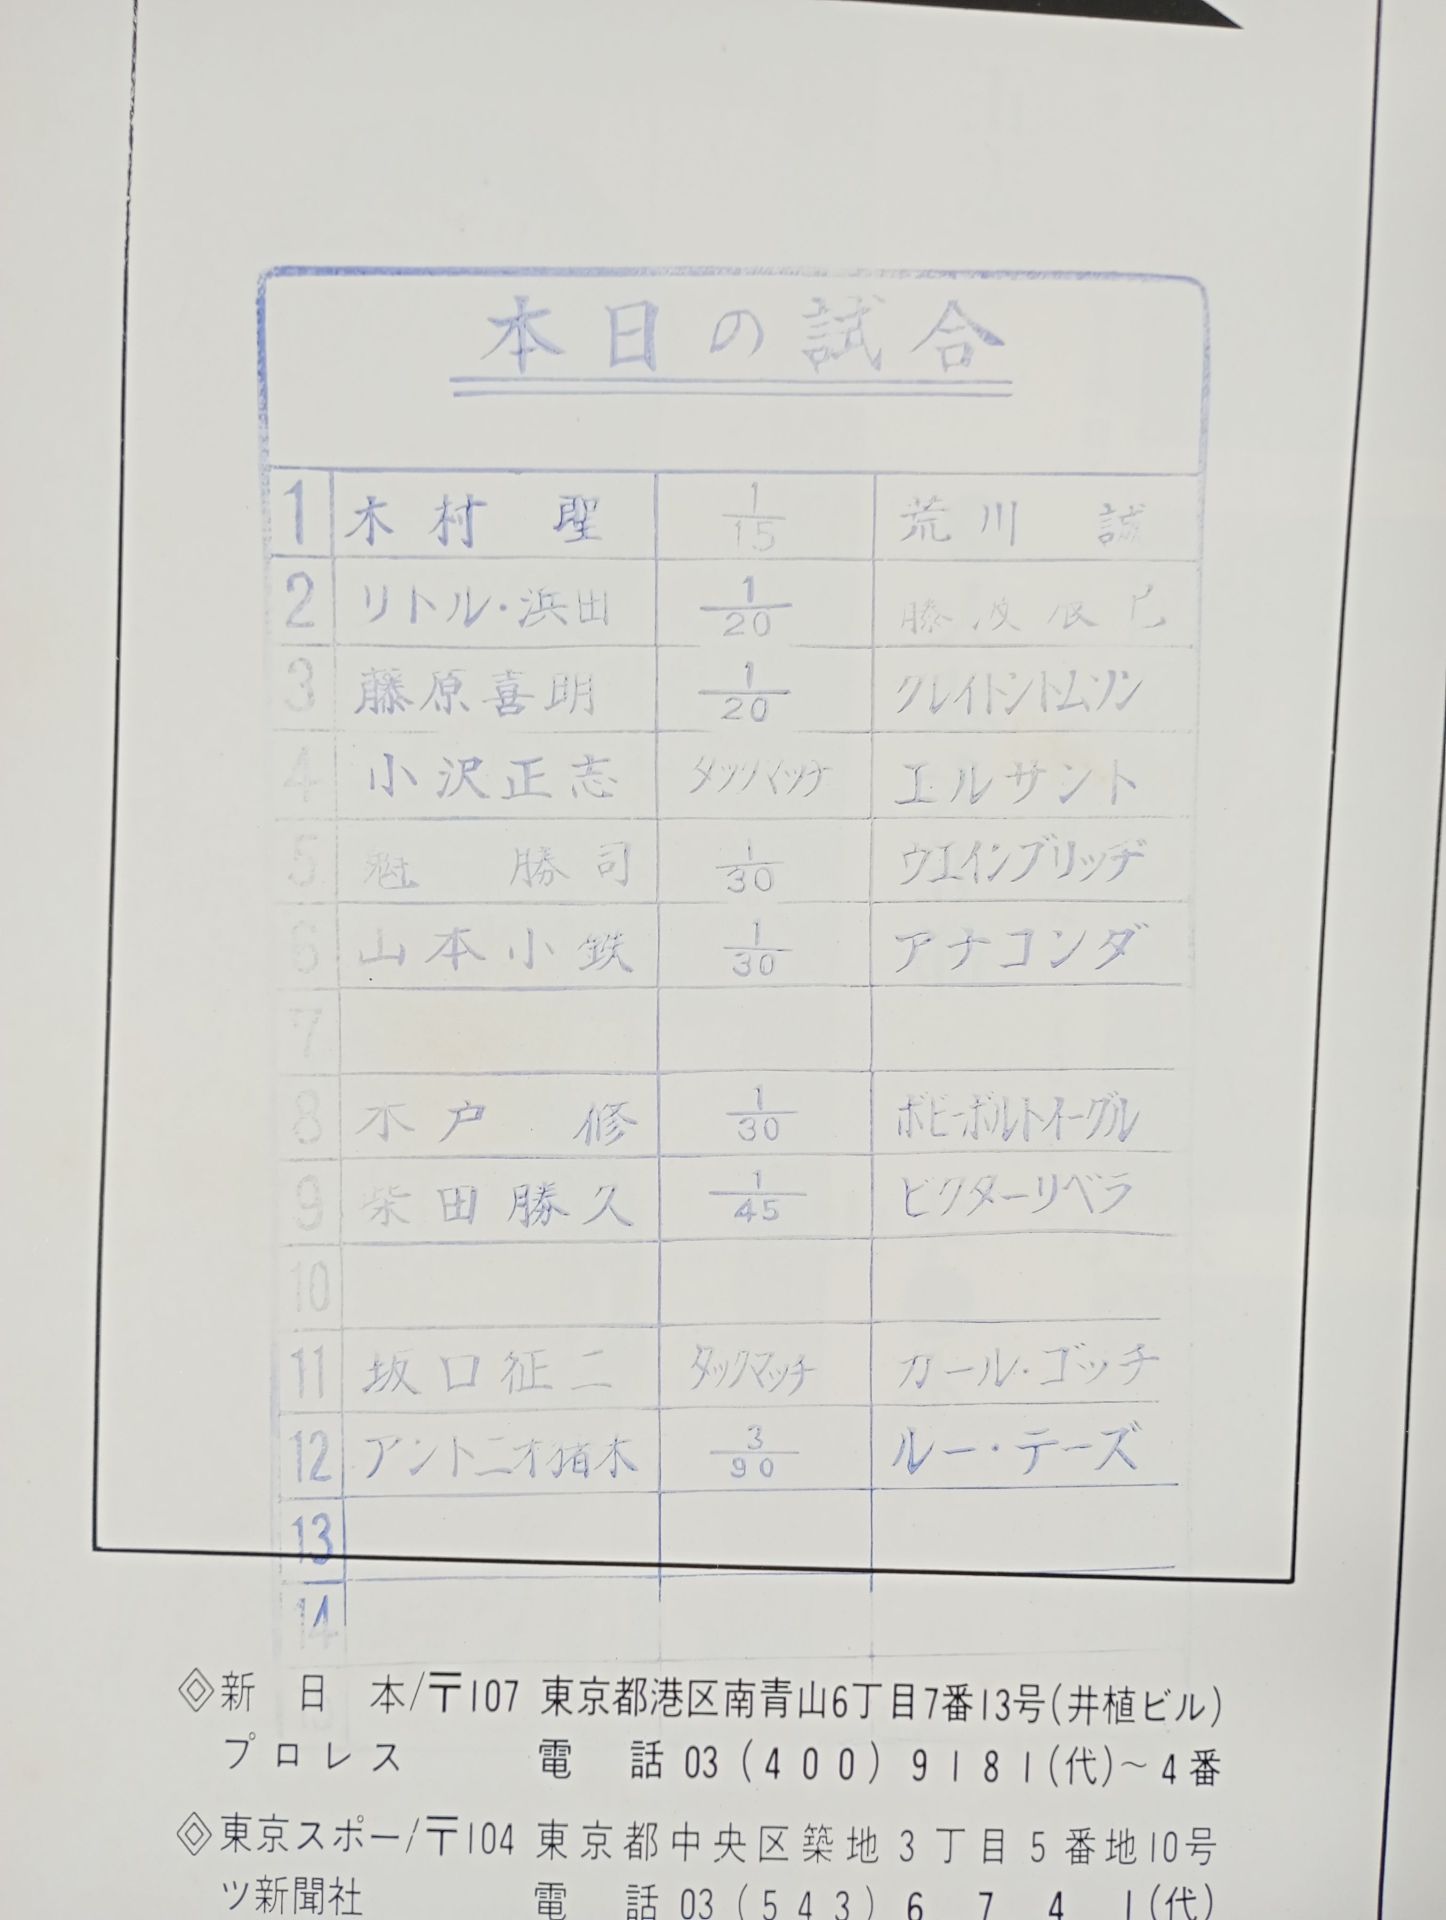 本日の試合
1 木村 聖 1/15 荒川 誠
2 リトル・浜田 1/20 藤波辰巳
3 藤原喜明 1/20 クレイトントムソン
4 小沢正志 タッグマッチ エルサント
5 魁 勝司 1/30 ウエインブリッヂ
6 山本小鉄 1/30 アナコンダ
7
8 木戸 修 1/30 ボビーボルトイーグル
9 柴田勝久 1/45 ビクターリベラ
10
11 坂口征二 タックマッチ カール・ゴッチ
12 アントニオ猪木 3/90 ルー・テーズ
13
14
◈新日本/〒107 東京都港区南青山6丁目7番13号(井植ビル)
プロレス 電話 03(400)9181(代)〜4番
◈東京スポー/〒104 東京都中央区築地3丁目5番地10号
ツ新聞社 電話 03(543)6741(代)